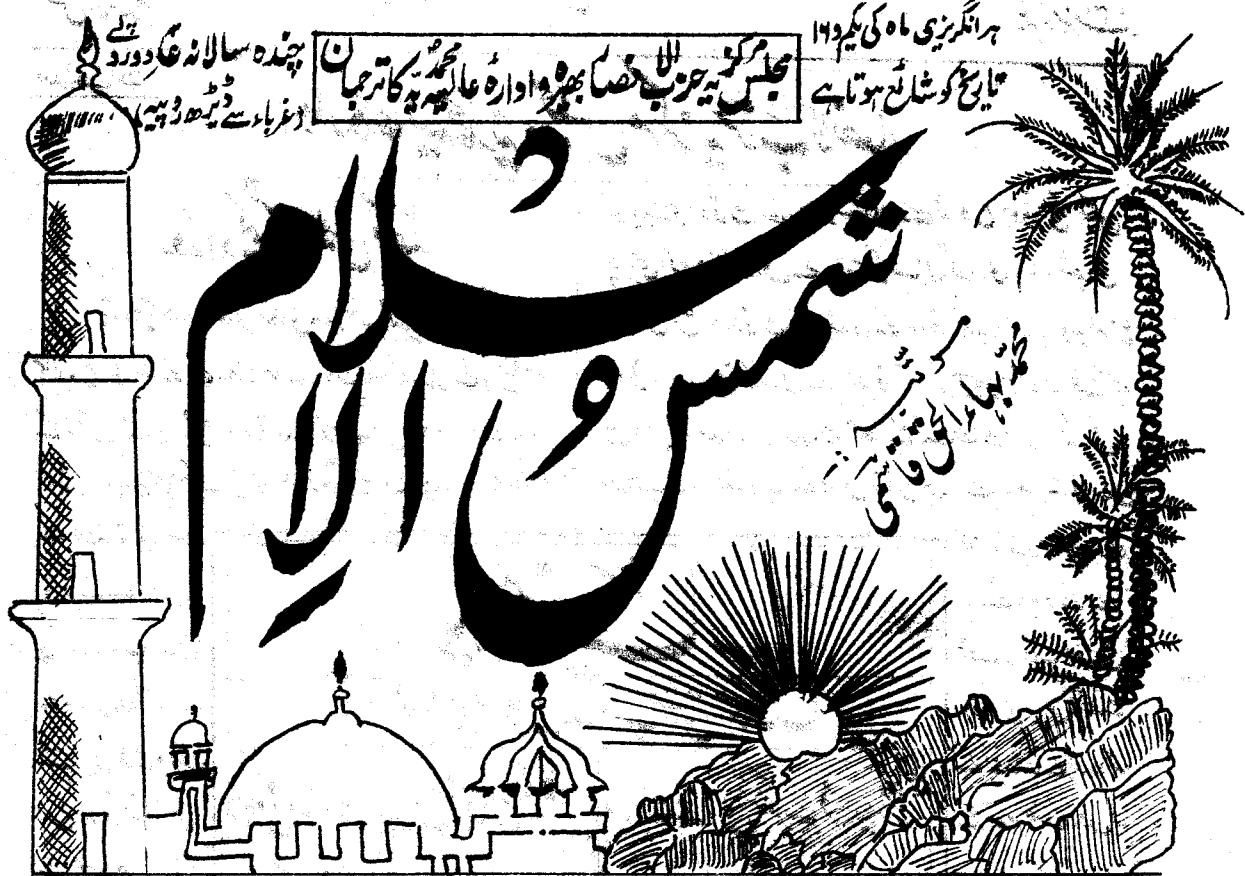 ہر انگریزی ماہ کی یکم و ۱۶
تاریخ کو شائع ہوتا ہے
مجلس مرکزیہ حزب الانصار بھیرہ و ادارۂ عالیہ محمدیہ کا ترجمان
چندہ سالانہ دو روپے
(غرباء سے ڈیڑھ روپیہ)
شمس الاسلام
محمد بہاء الحق قاسمی